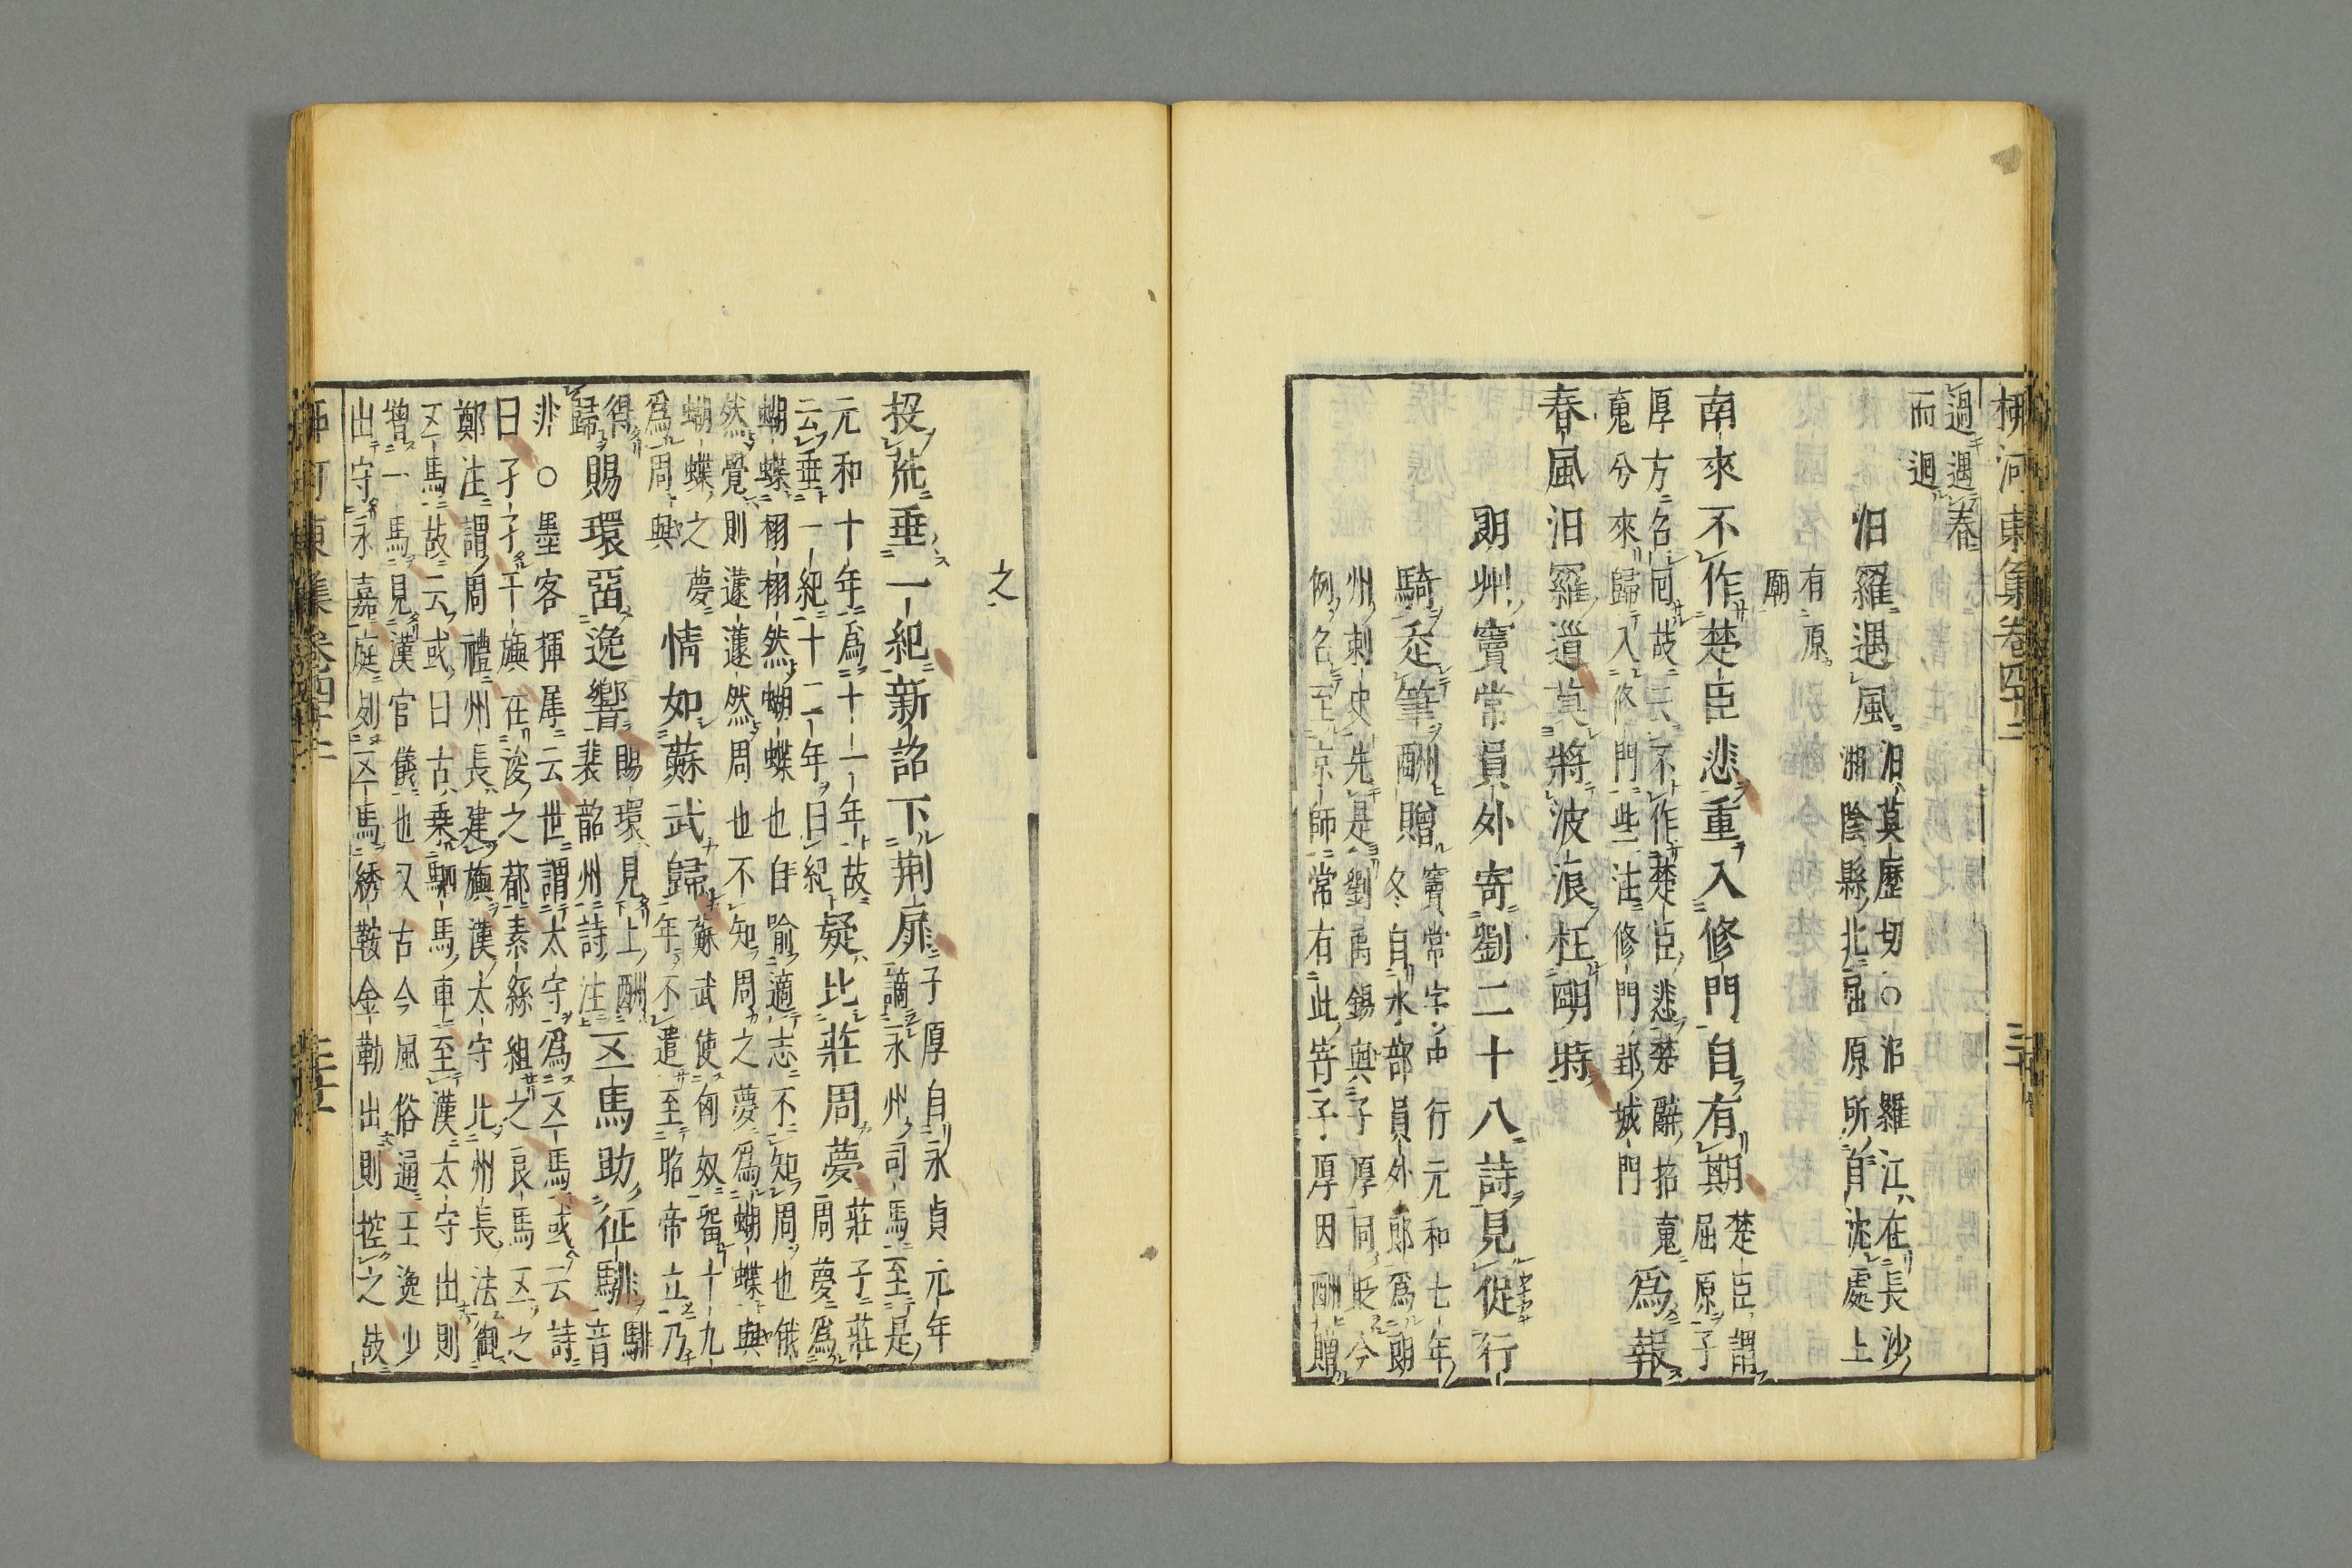 柳河東集卷四十二
三十
過遇春
而迴
汨羅遇風汨莫歷切○汨羅江在長沙
湘陰縣北屈原所自沈處上
有原
廟
南來不作楚臣悲重入修門自有期楚臣謂
屈原子
厚方召回故云不作楚臣悲楚辭招䰟
䰟兮來歸入修門些注修門郢城門
爲報
春風汨羅道莫將波浪枉明時
朗州竇常員外寄劉二十八詩見促行
騎走筆酬贈竇常字中行元和七年
冬自水部員外郎爲朗
州刺史先是劉禹錫與子厚同貶今
例召至京師常有此寄子厚因酬贈
之
投荒垂一紀新詔下荆扉子厚自永貞元年
謫永州司馬至是
元和十年爲十一年故
云垂一紀十二年曰紀
疑比莊周夢莊子莊
周夢爲
蝴蝶栩栩然蝴蝶也自喻適志不知周也俄
然覺則蘧蘧然周也不知周之夢爲蝴蝶與
蝴蝶之夢
爲周與
情如蘇武歸蘇武使匈奴留十九
年不遣至昭帝立乃
得
歸
賜環留逸響賜環見上酬
裴韶州詩注
五馬助征騑騑音
非○墨客揮犀云世謂太守爲五馬或云詩
曰孑孑干旟在浚之都素絲組之良馬五之
鄭注謂周禮州長建旟漢太守比州長法御
五馬故云或曰古乗駟馬車至漢太守出則
增一馬見漢官儀也又古今風俗通王逸少
出守永嘉庭列五馬綉鞍金勒出則控之故
柳河東集卷四十二